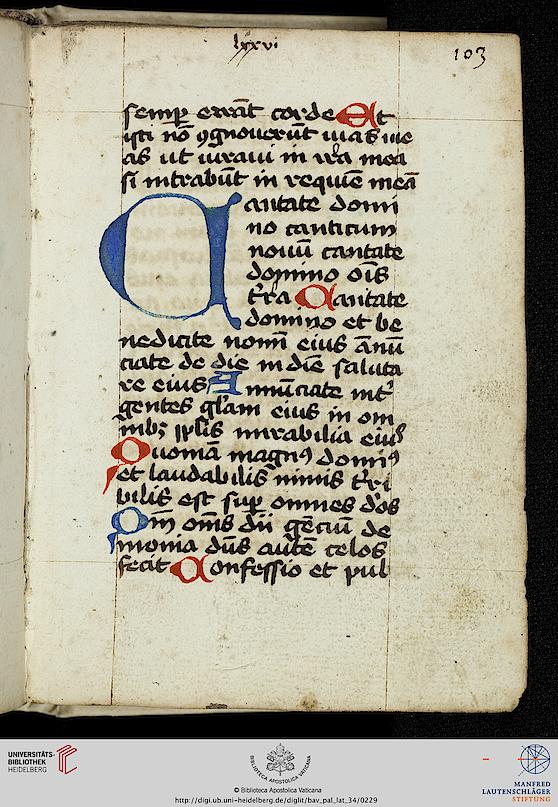 lxxvi
103
semp̲ erra̅t corde Et
isti no̅ ꝯgnoueru̅t uias me
as ut iuraui in ira mea
si intrabu̅t in requie̅ mea̅
Cantate domi
no canticum
nouu̅ cantate
domino o̅i̅s
t̅ra Cantate
domino et be
nedicite nomi̅ eius a̅nu̅
ciate de die in die̅ saluta
re eius Annu̅ciate int̅
gentes gl̅am eius in om
nibꝫ pp̅lis mirabilia eiuꝰ
Quonia̅ magnꝰ dominꝰ
et laudabilis nimis t̅ri
bilis est sup̲ omnes d̅os
Qm̅ om̅s dii ge̅ciu̅ de
monia d̅ns aute̅ celos
fecit Confessio et pul
UNIVERSITÄTS-
BIBLIOTHEK
HEIDELBERG
BIBLIOTHECA APOSTOLICA VATICANA
© Biblioteca Apostolica Vaticana
http://digi.ub.uni-heidelberg.de/diglit/bav_pal_lat_34/0229
MANFRED
LAUTENSCHLÄGER
STIFTUNG